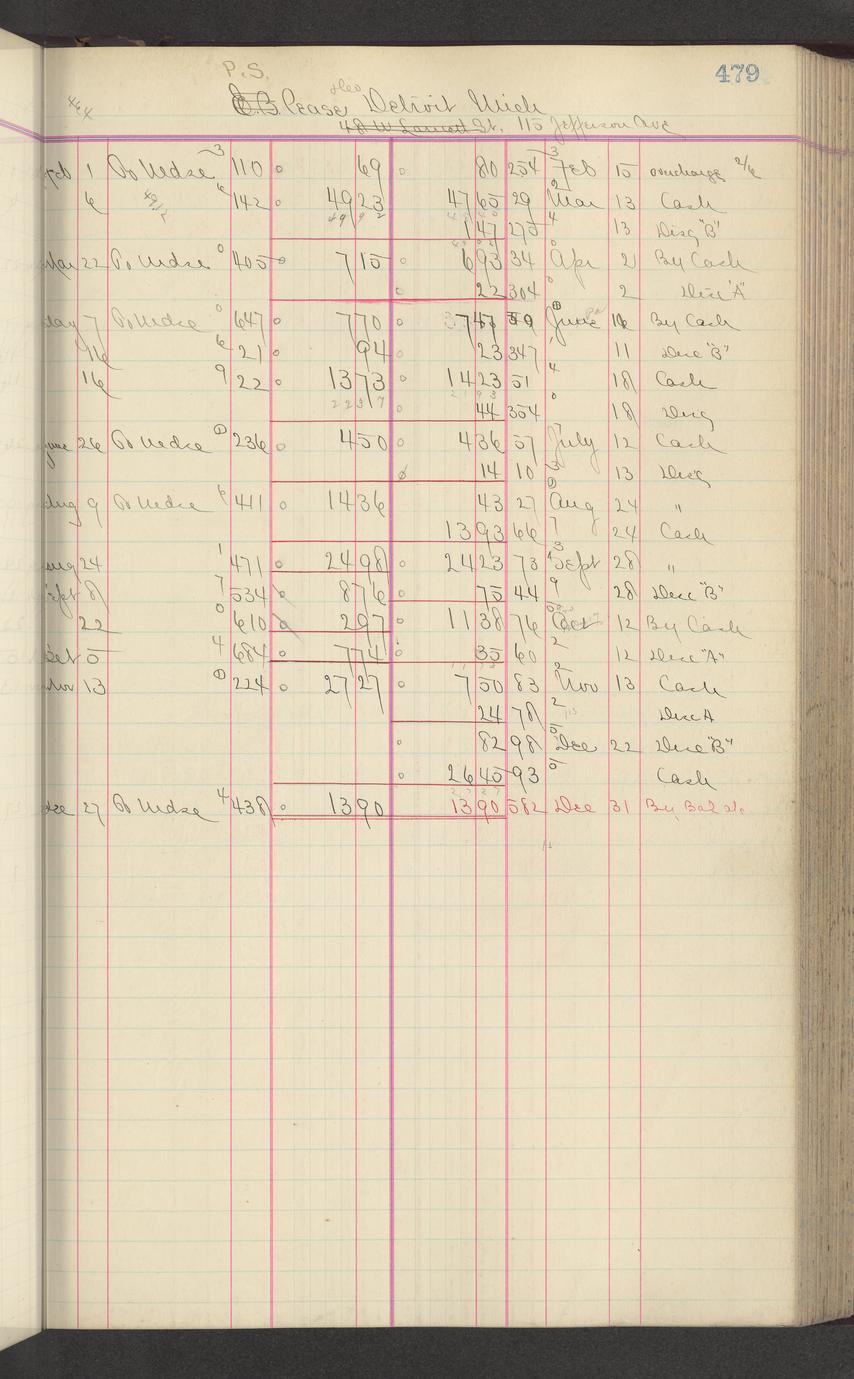 P.S. 479
Pease, Detroit Mich
St. 115 Jefferson Ave
Feb 1 To Mdse 3 110 69 80 254 3 Feb 15 overcharge 2/6
6 6 142 4923 4765 29 2 Mar 13 Cash
147 275 4 13 Disc "B"
Mar 22 To Mdse 0 405 715 693 34 0 Apr 2 By Cash
22 304 0 2 Disc "A"
May 7 To Mdse 0 647 770 747 59 June By Cash
16 6 21 94 23 347 1 11 Disc "B"
16 9 22 1373 1423 51 4 18 Cash
2237 2193
44 354 0 18 Disc
June 26 To Mdse 236 450 436 57 7 July 12 Cash
14 10 3 13 Disc
Aug 9 To Mdse 6 411 1436 43 27 Aug 24 "
1393 66 7 24 Cash
Aug 24 1 471 2498 2423 73 3 Sept 28 "
Sept 8 7 534 876 75 44 9 28 Disc "B"
22 0 610 297 1138 76 Oct 12 By Cash
Oct 5 4 684 774 35 60 2 12 Disc "A"
Nov 13 224 2727 750 83 2 Nov 13 Cash
24 78 2 Disc A
82 98 5 Dec 22 Disc "B"
2645 93 0 Cash
Dec 27 To Mdse 4 438 1390 1390 582 Dec 31 By Bal